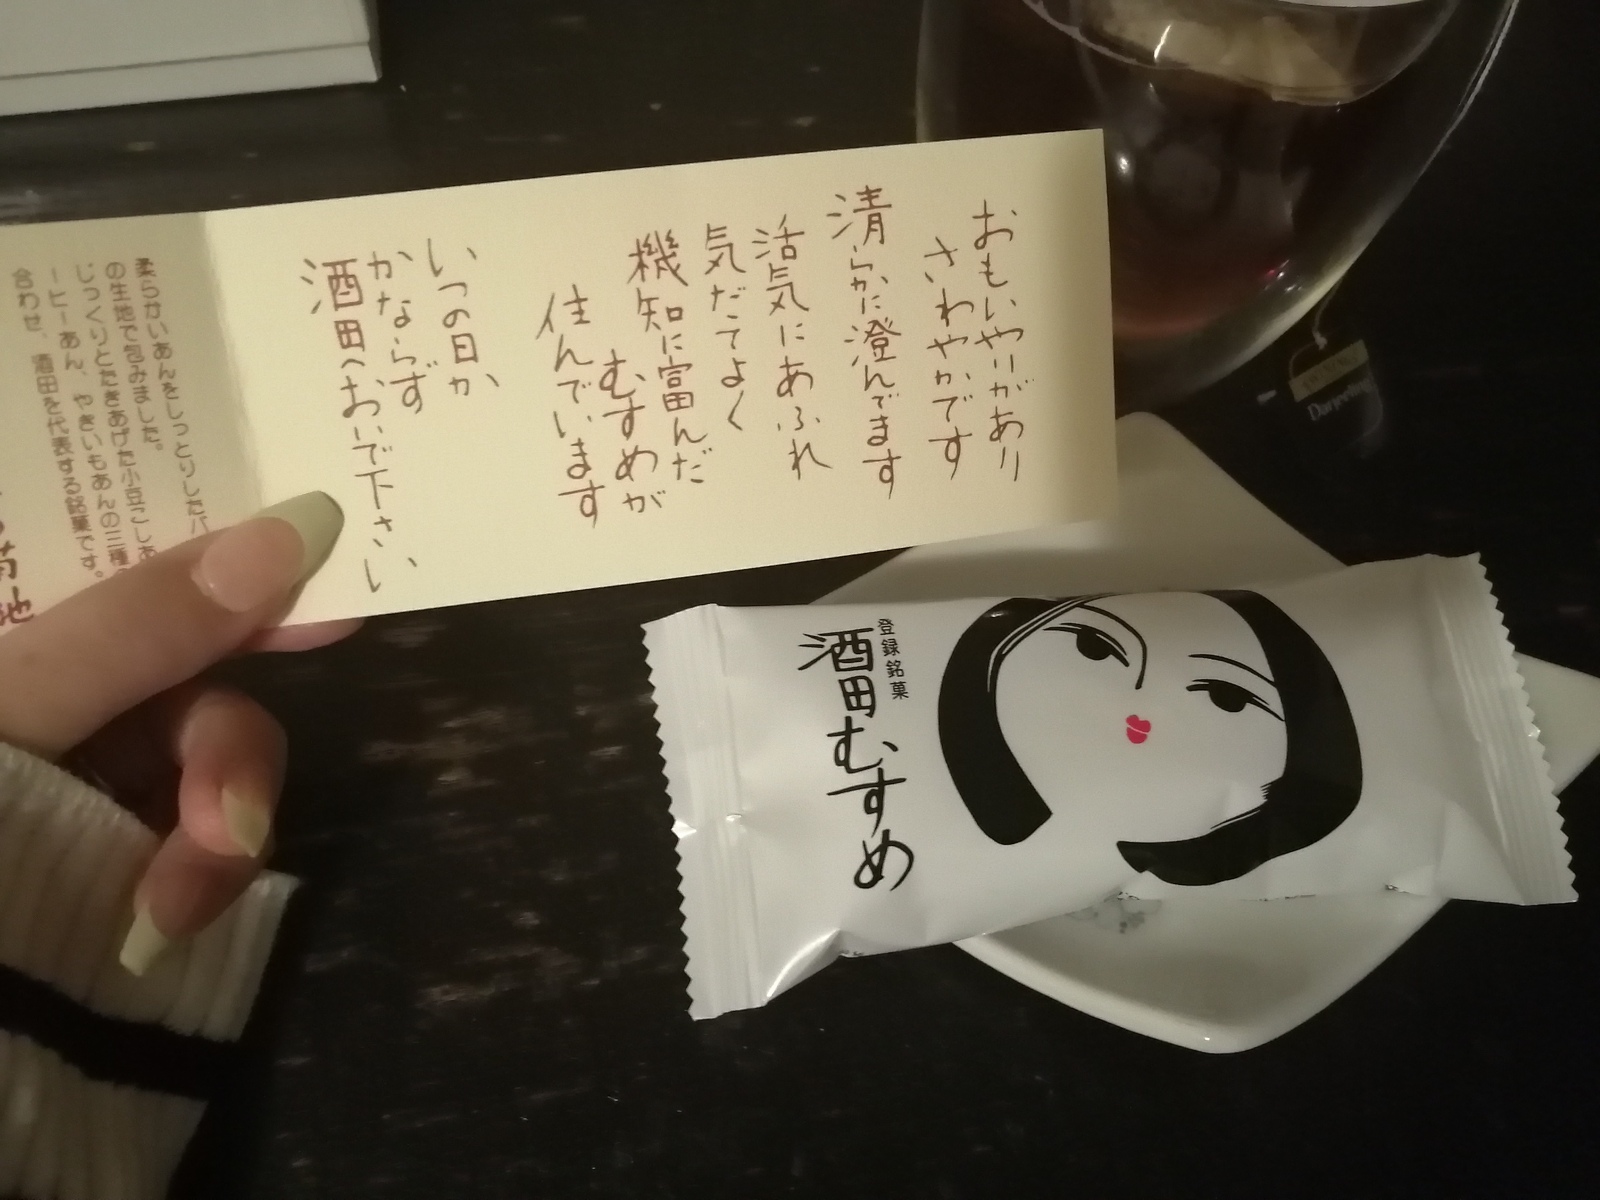 おもいやりがあり
さわやかです
清らかに澄んでます
活気にあふれ
気だてよく
機知に富んだ
むすめが
住んでいます
いつの日か
かならず
酒田へおいで下さい
柔らかいあんをしっとりしたバ
の生地で包みました。
じっくりとたきあげた小豆こしあ
ーヒーあん、やきいもあんの三種
合わせ、酒田を代表する銘菓です。
菊池
登録銘菓
酒田むすめ
Darjeeling